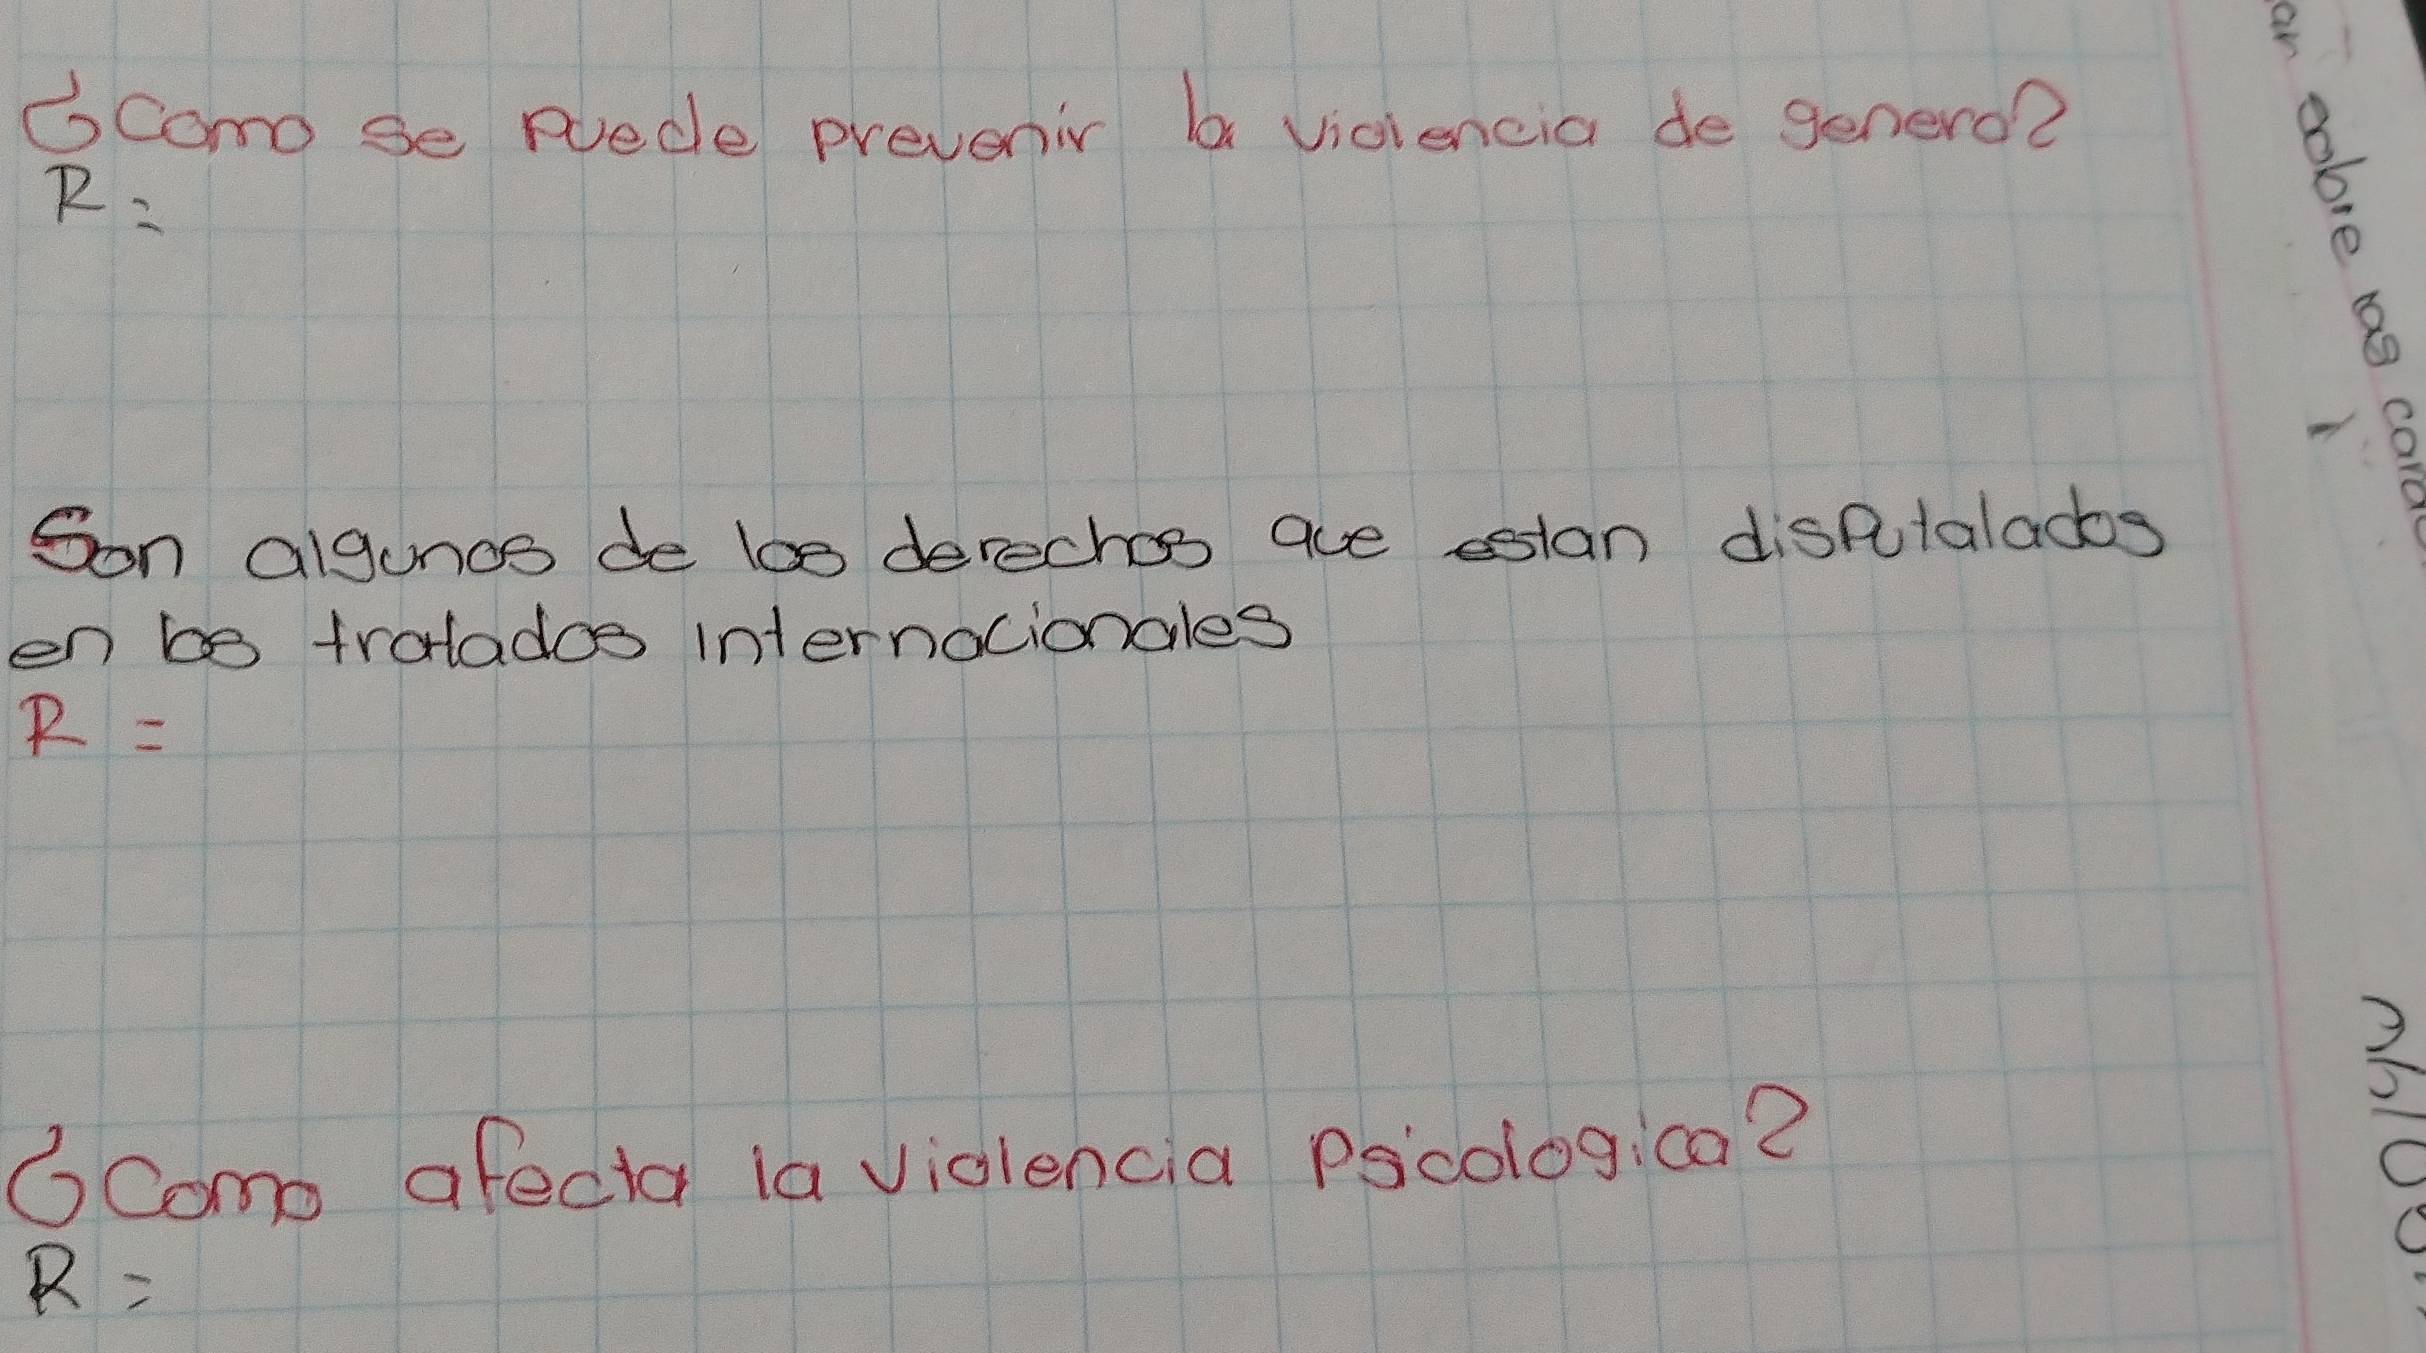 ¿Como se puede prevenir la violencia de genero?
R=
Son algunos de los derechos que estan disputalados
en los tratados internacionales
R=
¿Como afecta la violencia psicologica?
R=